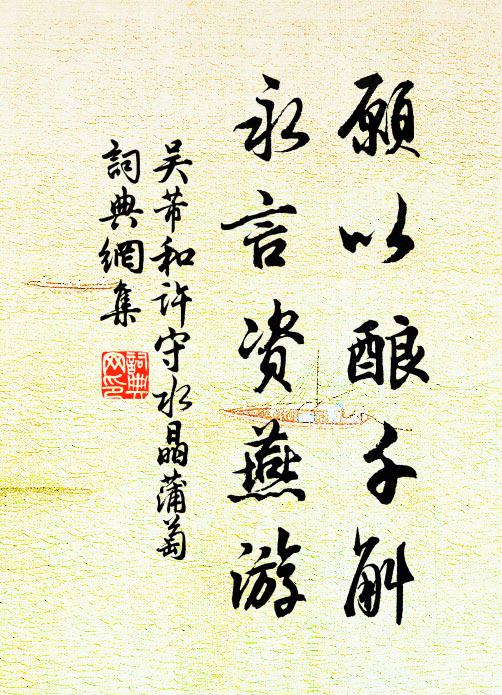 願以酿千斛
永言资燕游
吴芾和许守水晶蒲萄
詞典網集
詞典网印